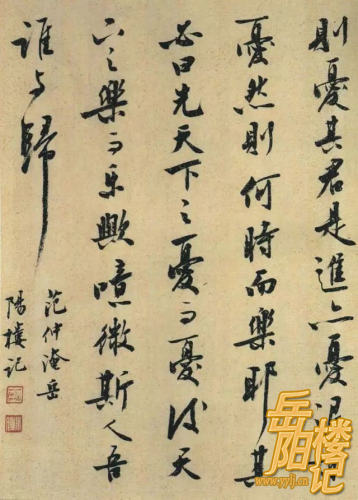 則憂其君是進亦憂退
憂然則何時而樂耶其
必曰先天下之憂而憂後天
下之樂而乐歟噫微斯人吾
誰与歸
范仲淹岳
陽樓記
岳阳楼记
www.yylj.cn